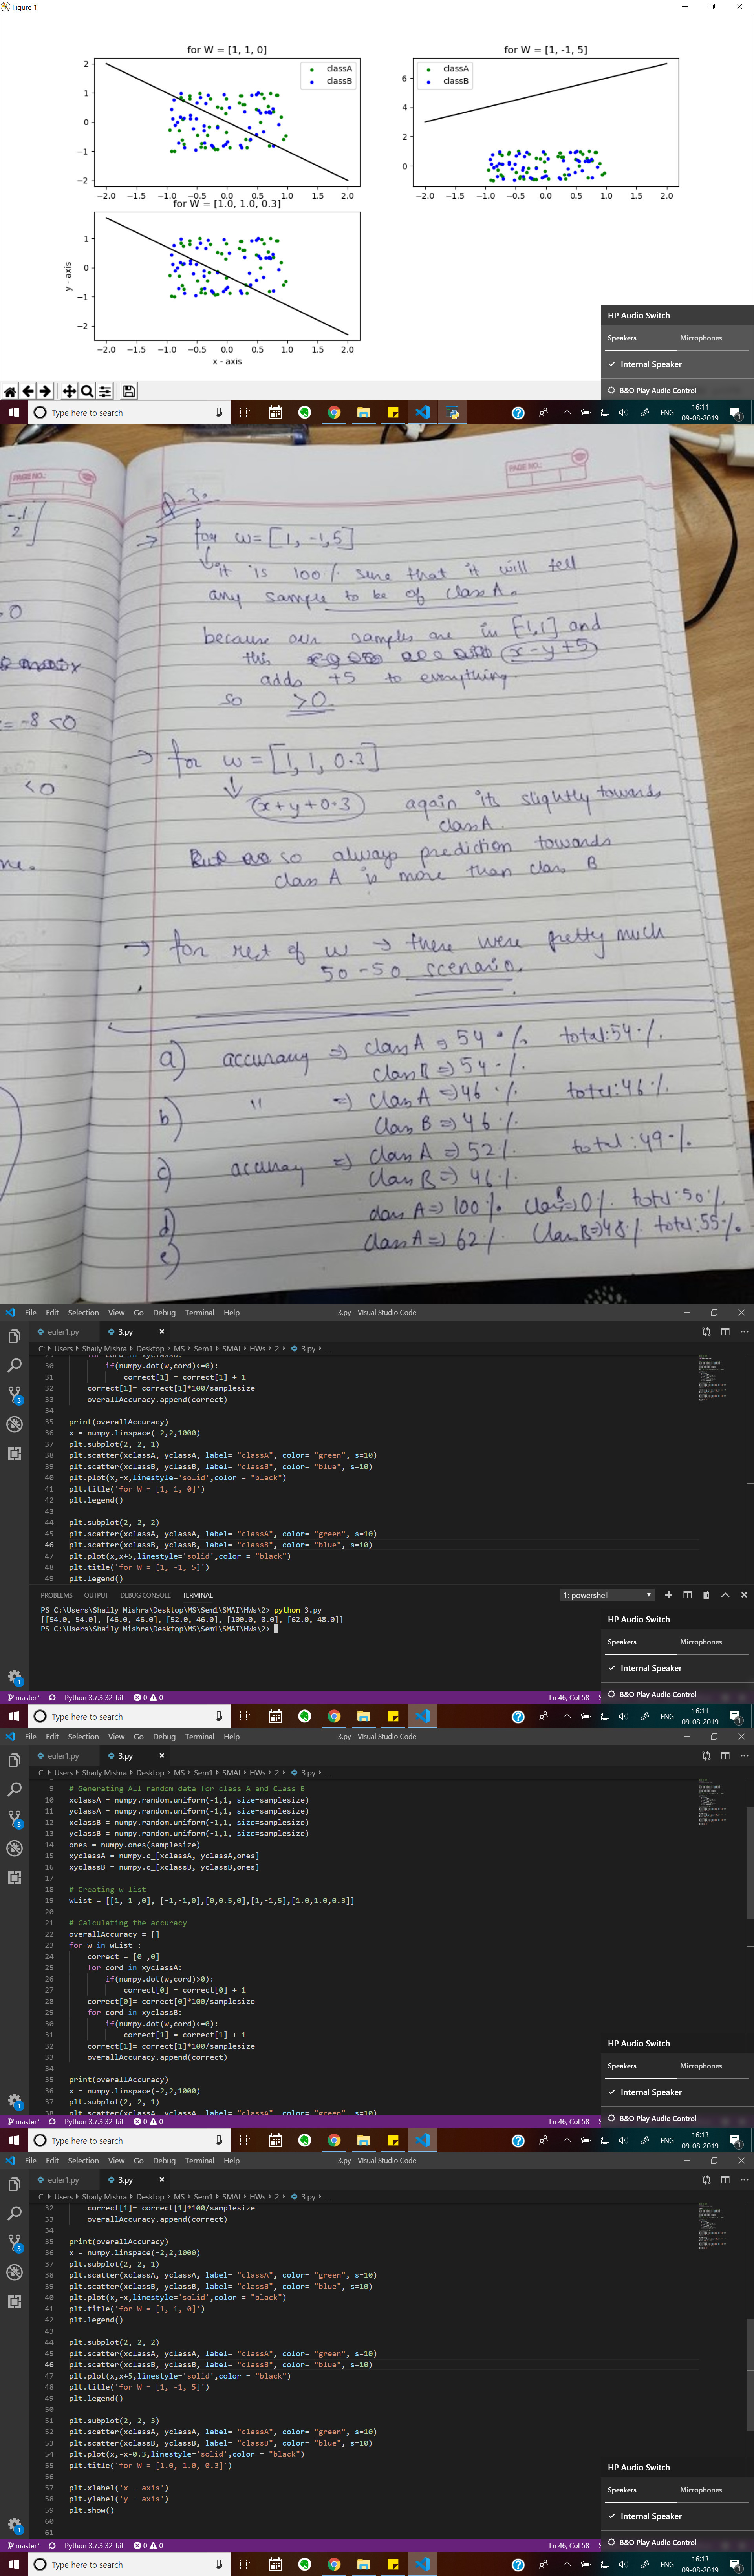 Figure 1
for W = [1, 1, 0]
classA
classB
2
1
0
−1
−2
−2.0 −1.5 −1.0 −0.5 0.0 0.5 1.0 1.5 2.0
for W = [1, -1, 5]
classA
classB
6
4
2
0
−2.0 −1.5 −1.0 −0.5 0.0 0.5 1.0 1.5 2.0
for W = [1.0, 1.0, 0.3]
1
0
−1
−2
y - axis
−2.0 −1.5 −1.0 −0.5 0.0 0.5 1.0 1.5 2.0
x - axis
HP Audio Switch
Speakers Microphones
Internal Speaker
B&O Play Audio Control
Type here to search
ENG
16:11
09-08-2019
PAGE NO.:
PAGE NO.:
Q-3.
→ for w = [1, -1, 5]
it is 100 % sure that it will tell
any sample to be of class A.
because our samples are in [-1,1] and
this x-y+5
adds +5 to everything
so >0.
= -8 <0
<0
→ for w = [1, 1, 0.3]
x+y+0.3 again its slightly towards
class A.
so always prediction towards
class A is more than class B
→ for rest of w → there were pretty much
50-50 scenario.
a) accuracy ⇒ class A ⇒ 54 % total: 54 %
class B ⇒ 54 %
b) " ⇒ class A ⇒ 46 % total: 46 %
class B ⇒ 46 %
c) accuracy ⇒ class A ⇒ 52 % total: 49 %
class B ⇒ 46 %
d) class A ⇒ 100 % class B ⇒ 0 % total: 50 %
e) class A ⇒ 62 % class B ⇒ 48 % total: 55 %
File Edit Selection View Go Debug Terminal Help
3.py - Visual Studio Code
euler1.py 3.py
C: > Users > Shaily Mishra > Desktop > MS > Sem1 > SMAI > HWs > 2 > 3.py > ...
29 for cord in xyclassB:
30 if(numpy.dot(w,cord)<=0):
31 correct[1] = correct[1] + 1
32 correct[1]= correct[1]*100/samplesize
33 overallAccuracy.append(correct)
34
35 print(overallAccuracy)
36 x = numpy.linspace(-2,2,1000)
37 plt.subplot(2, 2, 1)
38 plt.scatter(xclassA, yclassA, label= "classA", color= "green", s=10)
39 plt.scatter(xclassB, yclassB, label= "classB", color= "blue", s=10)
40 plt.plot(x,-x,linestyle='solid',color = "black")
41 plt.title('for W = [1, 1, 0]')
42 plt.legend()
43
44 plt.subplot(2, 2, 2)
45 plt.scatter(xclassA, yclassA, label= "classA", color= "green", s=10)
46 plt.scatter(xclassB, yclassB, label= "classB", color= "blue", s=10)
47 plt.plot(x,x+5,linestyle='solid',color = "black")
48 plt.title('for W = [1, -1, 5]')
49 plt.legend()
PROBLEMS OUTPUT DEBUG CONSOLE TERMINAL
1: powershell
PS C:\Users\Shaily Mishra\Desktop\MS\Sem1\SMAI\HWs\2> python 3.py
[[54.0, 54.0], [46.0, 46.0], [52.0, 46.0], [100.0, 0.0], [62.0, 48.0]]
PS C:\Users\Shaily Mishra\Desktop\MS\Sem1\SMAI\HWs\2>
HP Audio Switch
Speakers Microphones
Internal Speaker
B&O Play Audio Control
master* Python 3.7.3 32-bit 0 0 Ln 46, Col 58
Type here to search
ENG
16:11
09-08-2019
File Edit Selection View Go Debug Terminal Help
3.py - Visual Studio Code
euler1.py 3.py
C: > Users > Shaily Mishra > Desktop > MS > Sem1 > SMAI > HWs > 2 > 3.py > ...
9 # Generating All random data for class A and Class B
10 xclassA = numpy.random.uniform(-1,1, size=samplesize)
11 yclassA = numpy.random.uniform(-1,1, size=samplesize)
12 xclassB = numpy.random.uniform(-1,1, size=samplesize)
13 yclassB = numpy.random.uniform(-1,1, size=samplesize)
14 ones = numpy.ones(samplesize)
15 xyclassA = numpy.c_[xclassA, yclassA,ones]
16 xyclassB = numpy.c_[xclassB, yclassB,ones]
17
18 # Creating w list
19 wList = [[1, 1 ,0], [-1,-1,0],[0,0.5,0],[1,-1,5],[1.0,1.0,0.3]]
20
21 # Calculating the accuracy
22 overallAccuracy = []
23 for w in wList :
24 correct = [0 ,0]
25 for cord in xyclassA:
26 if(numpy.dot(w,cord)>0):
27 correct[0] = correct[0] + 1
28 correct[0]= correct[0]*100/samplesize
29 for cord in xyclassB:
30 if(numpy.dot(w,cord)<=0):
31 correct[1] = correct[1] + 1
32 correct[1]= correct[1]*100/samplesize
33 overallAccuracy.append(correct)
34
35 print(overallAccuracy)
36 x = numpy.linspace(-2,2,1000)
37 plt.subplot(2, 2, 1)
38 plt.scatter(xclassA, yclassA, label= "classA", color= "green", s=10)
HP Audio Switch
Speakers Microphones
Internal Speaker
B&O Play Audio Control
master* Python 3.7.3 32-bit 0 0 Ln 46, Col 58
Type here to search
ENG
16:13
09-08-2019
File Edit Selection View Go Debug Terminal Help
3.py - Visual Studio Code
euler1.py 3.py
C: > Users > Shaily Mishra > Desktop > MS > Sem1 > SMAI > HWs > 2 > 3.py > ...
32 correct[1]= correct[1]*100/samplesize
33 overallAccuracy.append(correct)
34
35 print(overallAccuracy)
36 x = numpy.linspace(-2,2,1000)
37 plt.subplot(2, 2, 1)
38 plt.scatter(xclassA, yclassA, label= "classA", color= "green", s=10)
39 plt.scatter(xclassB, yclassB, label= "classB", color= "blue", s=10)
40 plt.plot(x,-x,linestyle='solid',color = "black")
41 plt.title('for W = [1, 1, 0]')
42 plt.legend()
43
44 plt.subplot(2, 2, 2)
45 plt.scatter(xclassA, yclassA, label= "classA", color= "green", s=10)
46 plt.scatter(xclassB, yclassB, label= "classB", color= "blue", s=10)
47 plt.plot(x,x+5,linestyle='solid',color = "black")
48 plt.title('for W = [1, -1, 5]')
49 plt.legend()
50
51 plt.subplot(2, 2, 3)
52 plt.scatter(xclassA, yclassA, label= "classA", color= "green", s=10)
53 plt.scatter(xclassB, yclassB, label= "classB", color= "blue", s=10)
54 plt.plot(x,-x-0.3,linestyle='solid',color = "black")
55 plt.title('for W = [1.0, 1.0, 0.3]')
56
57 plt.xlabel('x - axis')
58 plt.ylabel('y - axis')
59 plt.show()
60
61
HP Audio Switch
Speakers Microphones
Internal Speaker
B&O Play Audio Control
master* Python 3.7.3 32-bit 0 0 Ln 46, Col 58
Type here to search
ENG
16:13
09-08-2019